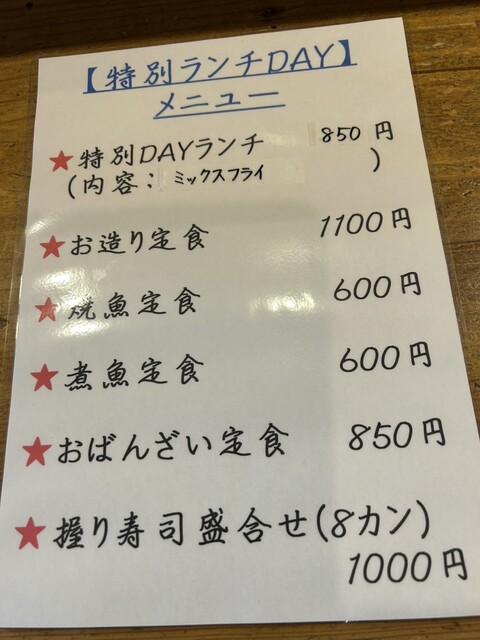 【特別ランチDAY】
メニュー
★特別DAYランチ 850円
(内容：ミックスフライ )
★お造り定食 1100円
★焼魚定食 600円
★煮魚定食 600円
★おばんざい定食 850円
★握り寿司盛合せ(8カン)
1000円